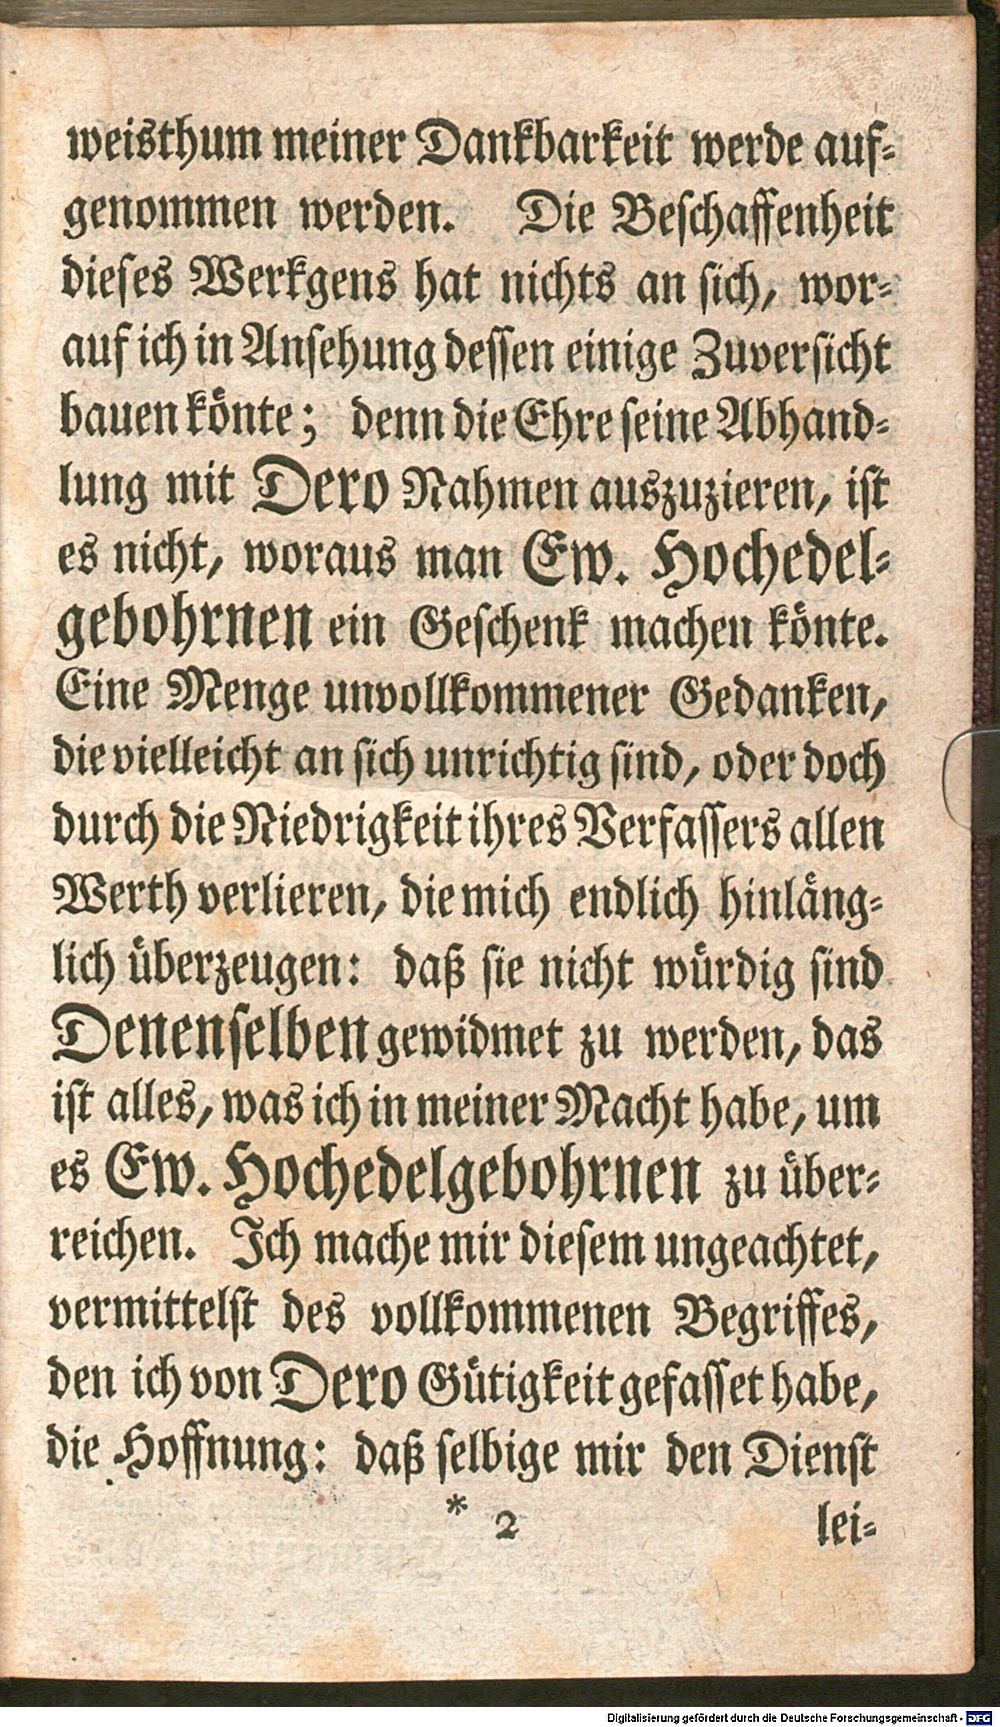 weisthum meiner Dankbarkeit werde auf-
genommen werden. Die Beschaffenheit
dieses Werkgens hat nichts an sich, wor-
auf ich in Ansehung dessen einige Zuversicht
bauen könte; denn die Ehre seine Abhand-
lung mit Dero Nahmen auszuzieren, ist
es nicht, woraus man Ew. Hochedel-
gebohrnen ein Geschenk machen könte.
Eine Menge unvollkommener Gedanken,
die vielleicht an sich unrichtig sind, oder doch
durch die Niedrigkeit ihres Verfassers allen
Werth verlieren, die mich endlich hinläng-
lich überzeugen: daß sie nicht würdig sind
Denenselben gewidmet zu werden, das
ist alles, was ich in meiner Macht habe, um
es Ew. Hochedelgebohrnen zu über-
reichen. Ich mache mir diesem ungeachtet,
vermittelst des vollkommenen Begriffes,
den ich von Dero Gütigkeit gefasset habe,
die Hoffnung: daß selbige mir den Dienst
* 2 lei-
Digitalisierung gefördert durch die Deutsche Forschungsgemeinschaft - DFG